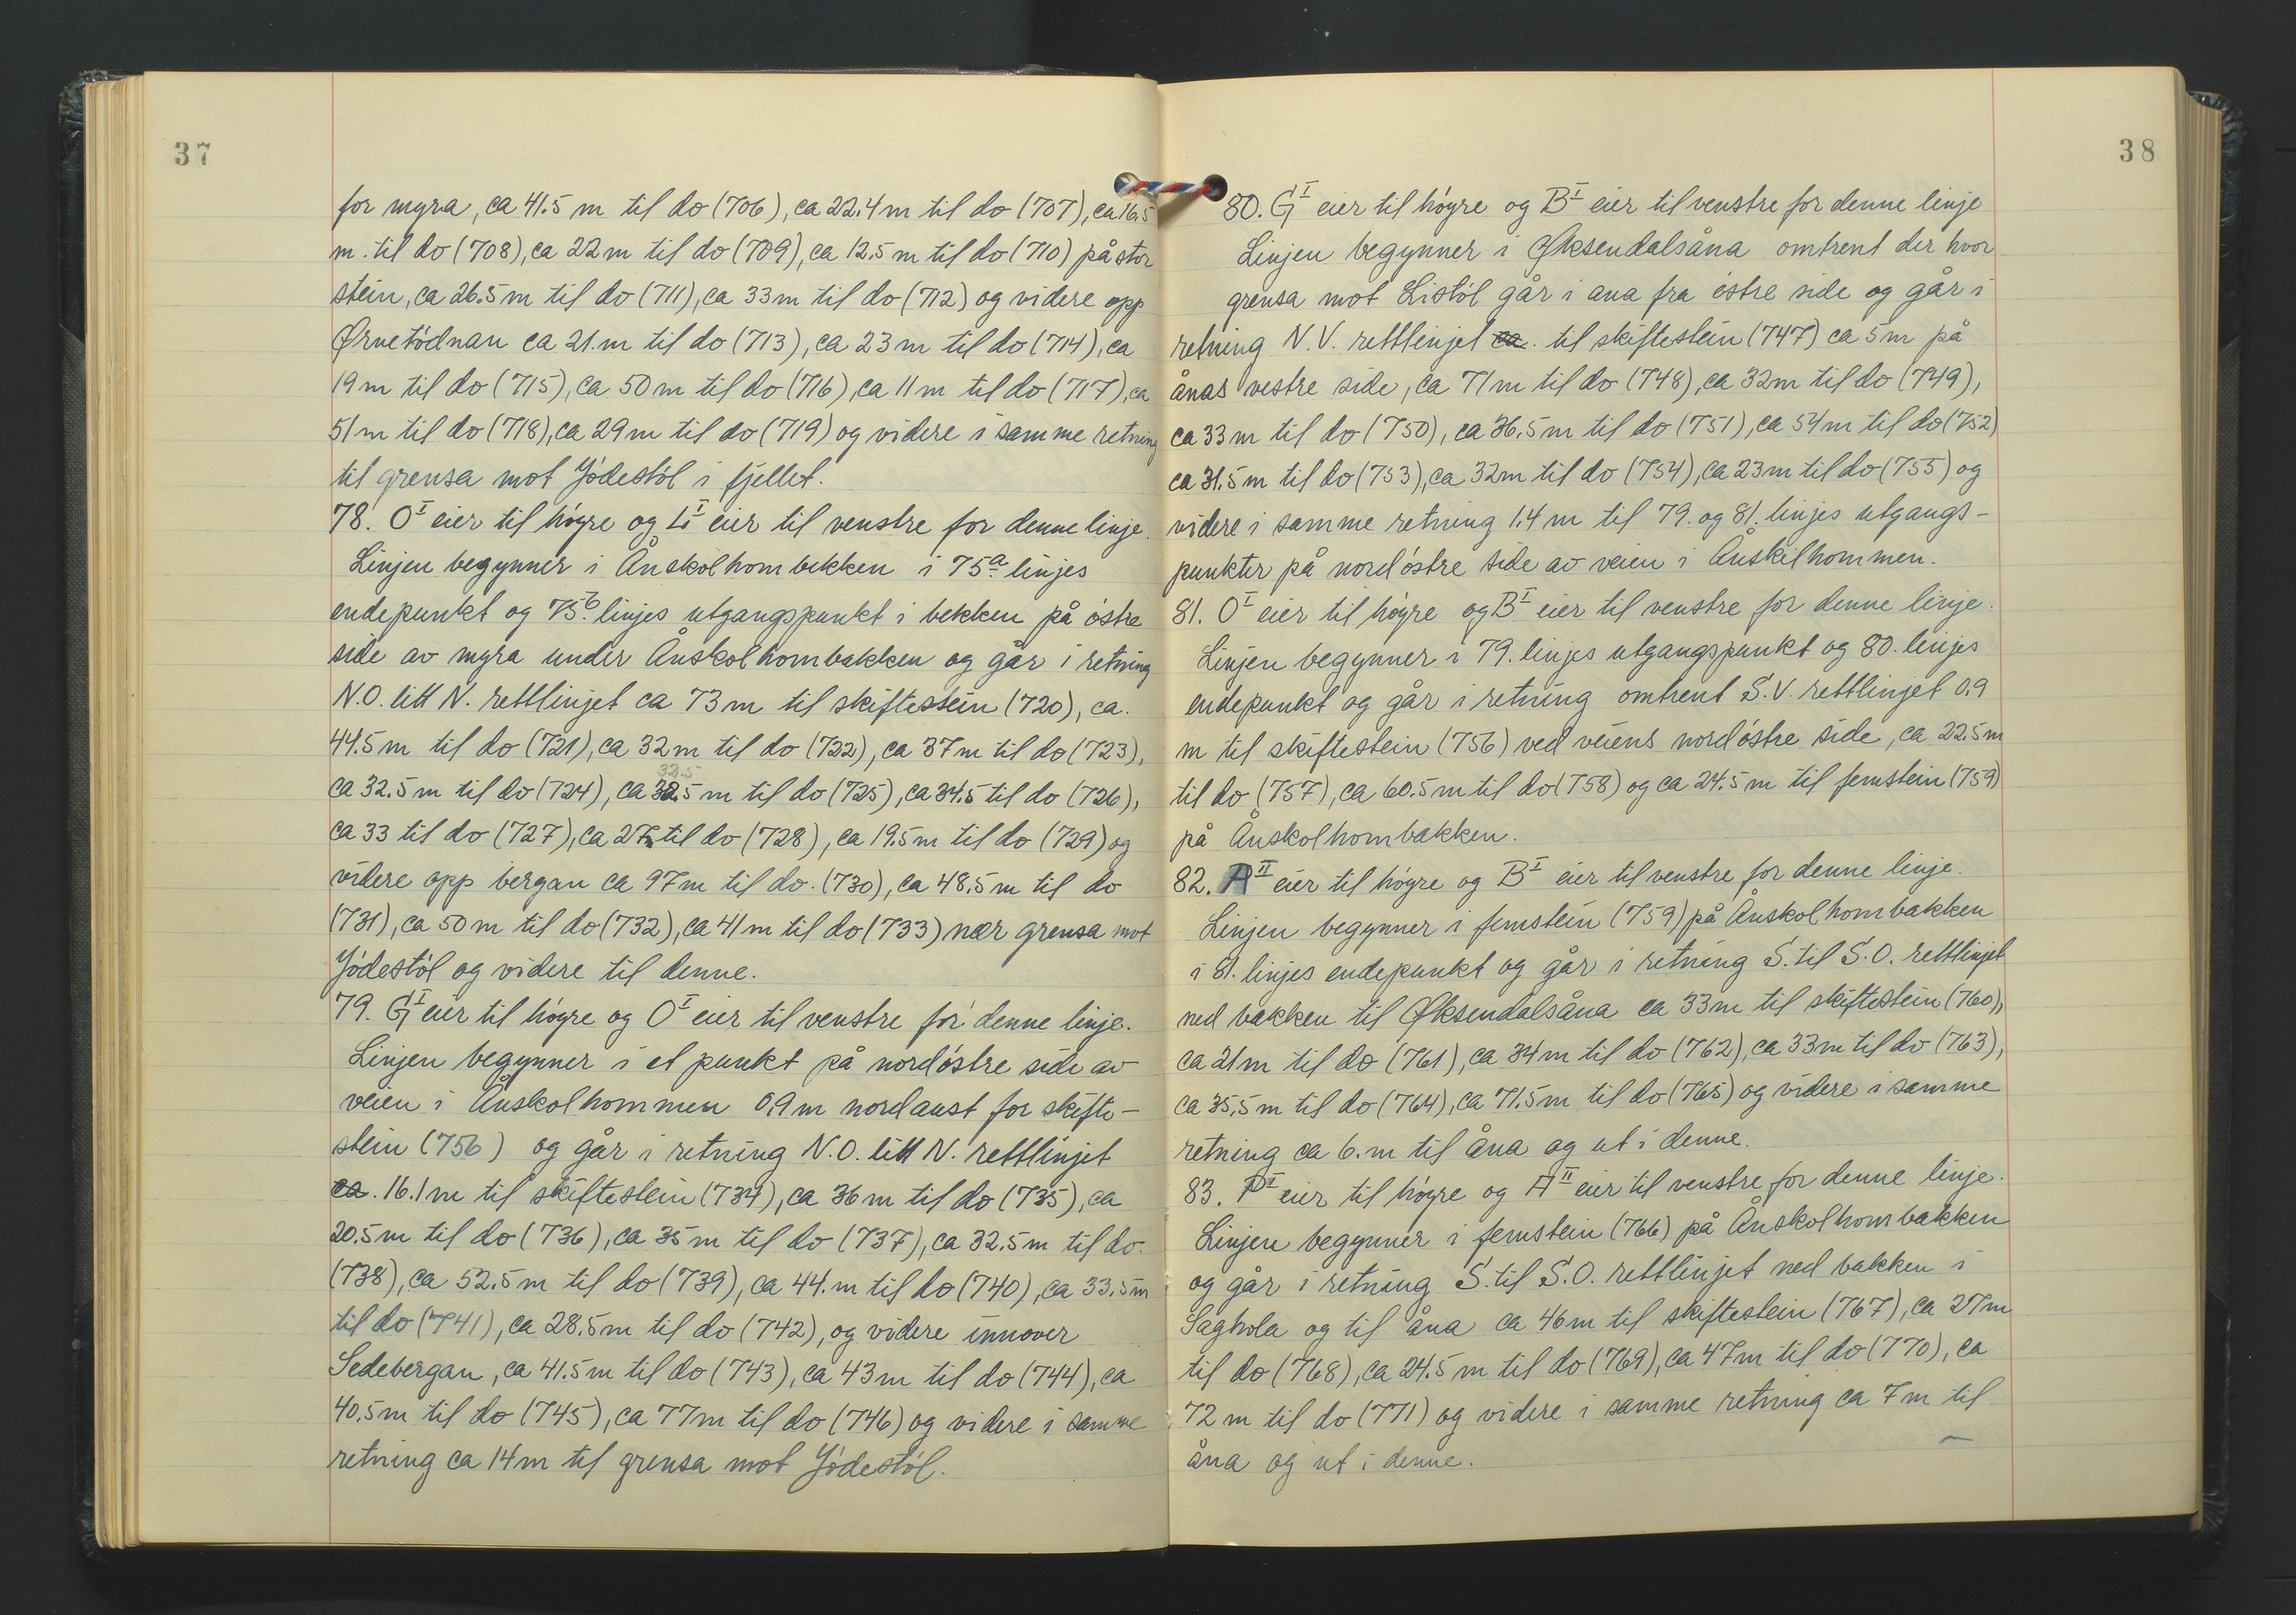 37
for myra, ca 41.5 m til do (706), ca 22.4 m til do (707), ca 16.5
m. til do (708), ca 22 m til do (709), ca 12.5 m til do (710) på stor
stein, ca 26.5 m til do (711), ca 33 m til do (712) og videre opp
Ørvetødnan ca 21.m til do (713), ca 23 m til do (714), ca
19 m til do (715), ca 50 m til do (716), ca 11 m til do (717), ca
51 m til do (718), ca 29 m til do (719) og videre i samme retning
til grensa mot Jødestøl i fjellet.
78. O^I eier til høgre og Li^I eier til venstre for denne linje.
Linjen begynner i Ånskolhombekken i 75^a linjes
endepunkt og 75^b linjes utgangspunkt i bekken på østre
side av myra under Ånskolhombakken og går i retning
N.O. litt N. rettlinjet ca 73 m til skiftestein (720), ca.
44.5 m til do (721), ca 32 m til do (722), ca 37 m til do (723),
32.5
ca 32.5 m til do (724), ca 32.5 m til do (725), ca 34.5 til do (726),
ca 33 til do (727), ca 27 m til do (728), ca 19.5 m til do (729) og
videre opp bergan ca 97 m til do. (730), ca 48.5 m til do
(731), ca 50 m til do (732), ca 41 m til do (733) nær grensa mot
Jødestøl og videre til denne.
79. G^I eier til høgre og O^I eier til venstre for denne linje.
Linjen begynner i et punkt på nordøstre side av
veien i Ånskolhommen 0.9 m nordaust for skifte-
stein (756) og går i retning N.O. litt N. rettlinjet
ca. 16.1 m til skiftestein (734), ca 36 m til do (735), ca
20.5 m til do (736), ca 35 m til do (737), ca 32.5 m til do.
(738), ca 52.5 m til do (739), ca 44. m til do (740), ca 33.5 m
til do (741), ca 28.5 m til do (742), og videre innover
Sedebergan, ca 41.5 m til do (743), ca 43 m til do (744), ca
40.5 m til do (745), ca 77 m til do (746) og videre i samme
retning ca 14 m til grensa mot Jødestøl.
38
80. G^I eier til høgre og B^I eier til venstre for denne linje
Linjen begynner i Øksendalsåna omtrent der hvor
grensa mot Listøl går i ana fra østre side og går i
retning N.V. rettlinjet ca. til skiftestein (747) ca 5 m på
ånas vestre side, ca 71 m til do (748), ca 32 m til do (749),
ca 33 m til do (750), ca 36.5 m til do (751), ca 54 m til do (752)
ca 31.5 m til do (753), ca 32 m til do (754), ca 23 m til do (755) og
videre i samme retning 1.4 m til 79. og 81. linjes utgangs-
punkter på nordøstre side av veien i Ånskilhommen.
81. O^I eier til høgre og B^I eier til venstre for denne linje.
Linjen begynner i 79. linjes utgangspunkt og 80. linjes
endepunkt og går i retning omtrent S.V. rettlinjet 0.9
m til skiftestein (756) ved veiens nordøstre side, ca 22.5 m
til do (757), ca 60.5 m til do (758) og ca 24.5 m til femstein (759)
på Ånskolhombakken.
82. A^II eier til høgre og B^I eier til venstre for denne linje.
Linjen begynner i femstein (759) på Ånskolhombakken
i 81. linjes endepunkt og går i retning S. til S.O. rettlinjet
ned bakken til Øksendalsåna ca 33 m til skiftestein (760),
ca 21 m til do (761), ca 34 m til do (762), ca 33 m til do (763),
ca 35.5 m til do (764), ca 71.5 m til do (765) og videre i samme
retning ca 6. m til åna og ut i denne.
83. P^I eier til høgre og A^II eier til venstre for denne linje.
Linjen begynner i femstein (766) på Ånskolhombakken
og går i retning S. til S.O. rettlinjet ned bakken i
Saghola og til åna ca 46 m til skiftestein (767), ca 27 m
til do (768), ca 24.5 m til do (769), ca 47 m til do (770), ca
72 m til do (771) og videre i samme retning ca 7 m til
åna og ut i denne.